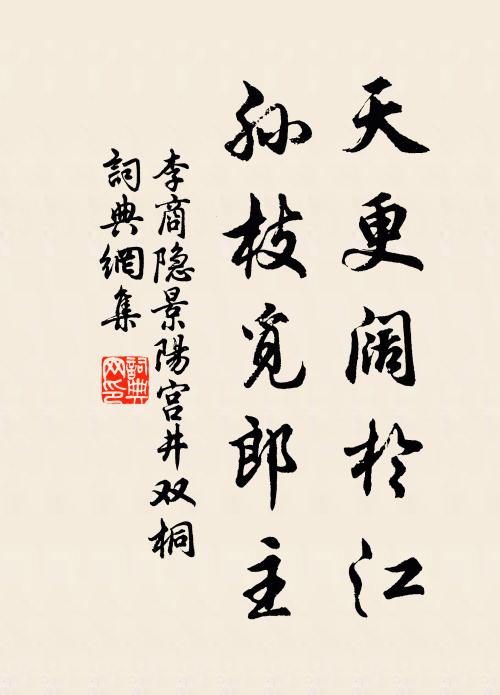 天更阔於江
孙枝觅郎主
李商隐景陽宫井双桐
詞典網集
詞典网印